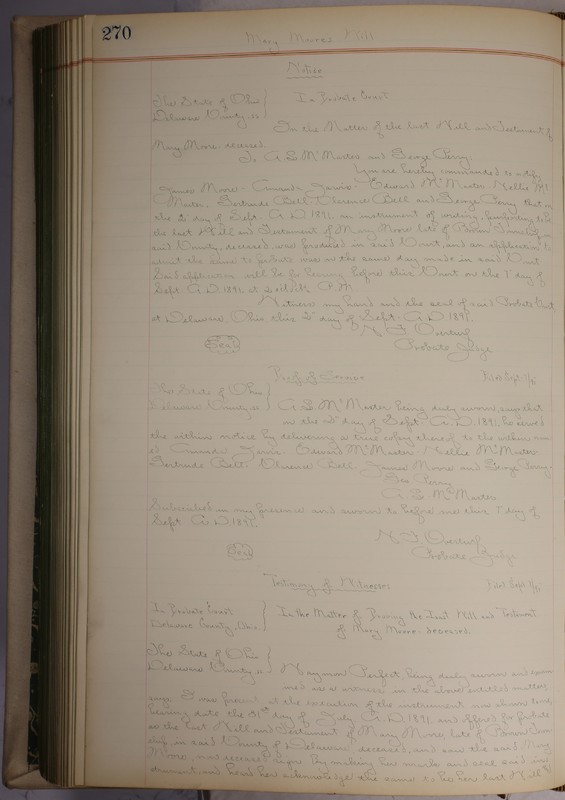 270
Mary Moores Will
Notice
The State of Ohio
Delaware County, ss } In Probate Court
In the Matter of the last Will and Testament of
Mary Moore deceased.
To A S McMaster and George Perry.
You are hereby commanded to notify
James Moore. Amanda Jarvis. Edward McMaster Nellie Mc
Master, Gertrude Bell. Clarence Bell and George Perry that on
the 2d day of Sept. A.D. 1891. an instrument of writing, purporting to be
the last Will and Testament of Mary Moore late of Township, in
said County, deceased, was produced in said Court, and an application to
admit the same to probate was on the same day made in said Court
Said application will be for hearing before this Court on the 7 day of
Sept. A.D. 1891. at 2 o'clock P.M.
Witness my hand and the seal of said Probate Court
at Delaware, Ohio this 2d day of Sept. A.D. 1891.
N. F. Overturf
Seal
Probate Judge
Proof of Service
Filed Sept.
The State of Ohio
Delaware County, ss } A. S. McMaster being duly sworn, says that
on the day of Sept. A.D. 1891, he served
the within notice by delivering a true copy thereof to the within
Amanda Jarvis. Edward McMaster. Nellie McMaster
Gertrude Bell. Clarence Bell, James Moore and George Perry.
Geo Perry
A. S. McMaster
Subscribed in my presence and sworn to before me this 7 day of
Sept. A.D. 1891.
N. F. Overturf
Seal
Probate Judge
Testimony of Witnesses
Filed Sept
In Probate Court
Delaware County, Ohio. } In the Matter of Proving the Last Will and Testament
of Mary Moore deceased.
The State of Ohio
Delaware County, ss } Perfect, being duly sworn and exam
ined as a witness in the above entitled matter,
says I was present at the execution of the instrument now shown to me,
bearing date the 31st day of July A.D. 1891. and offered for probate
as the last Will and Testament of Mary Moore, late of Town
ship, in said County of Delaware deceased, and saw the said Mary
Moore, now deceased sign by making her mark and seal said in
strument, and heard her acknowledge the same to be her last Will &